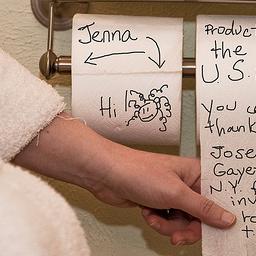 Jenna
Hi!
Product
the
U.S.
you
thank
Jose
Gaye
N.Y.
inv